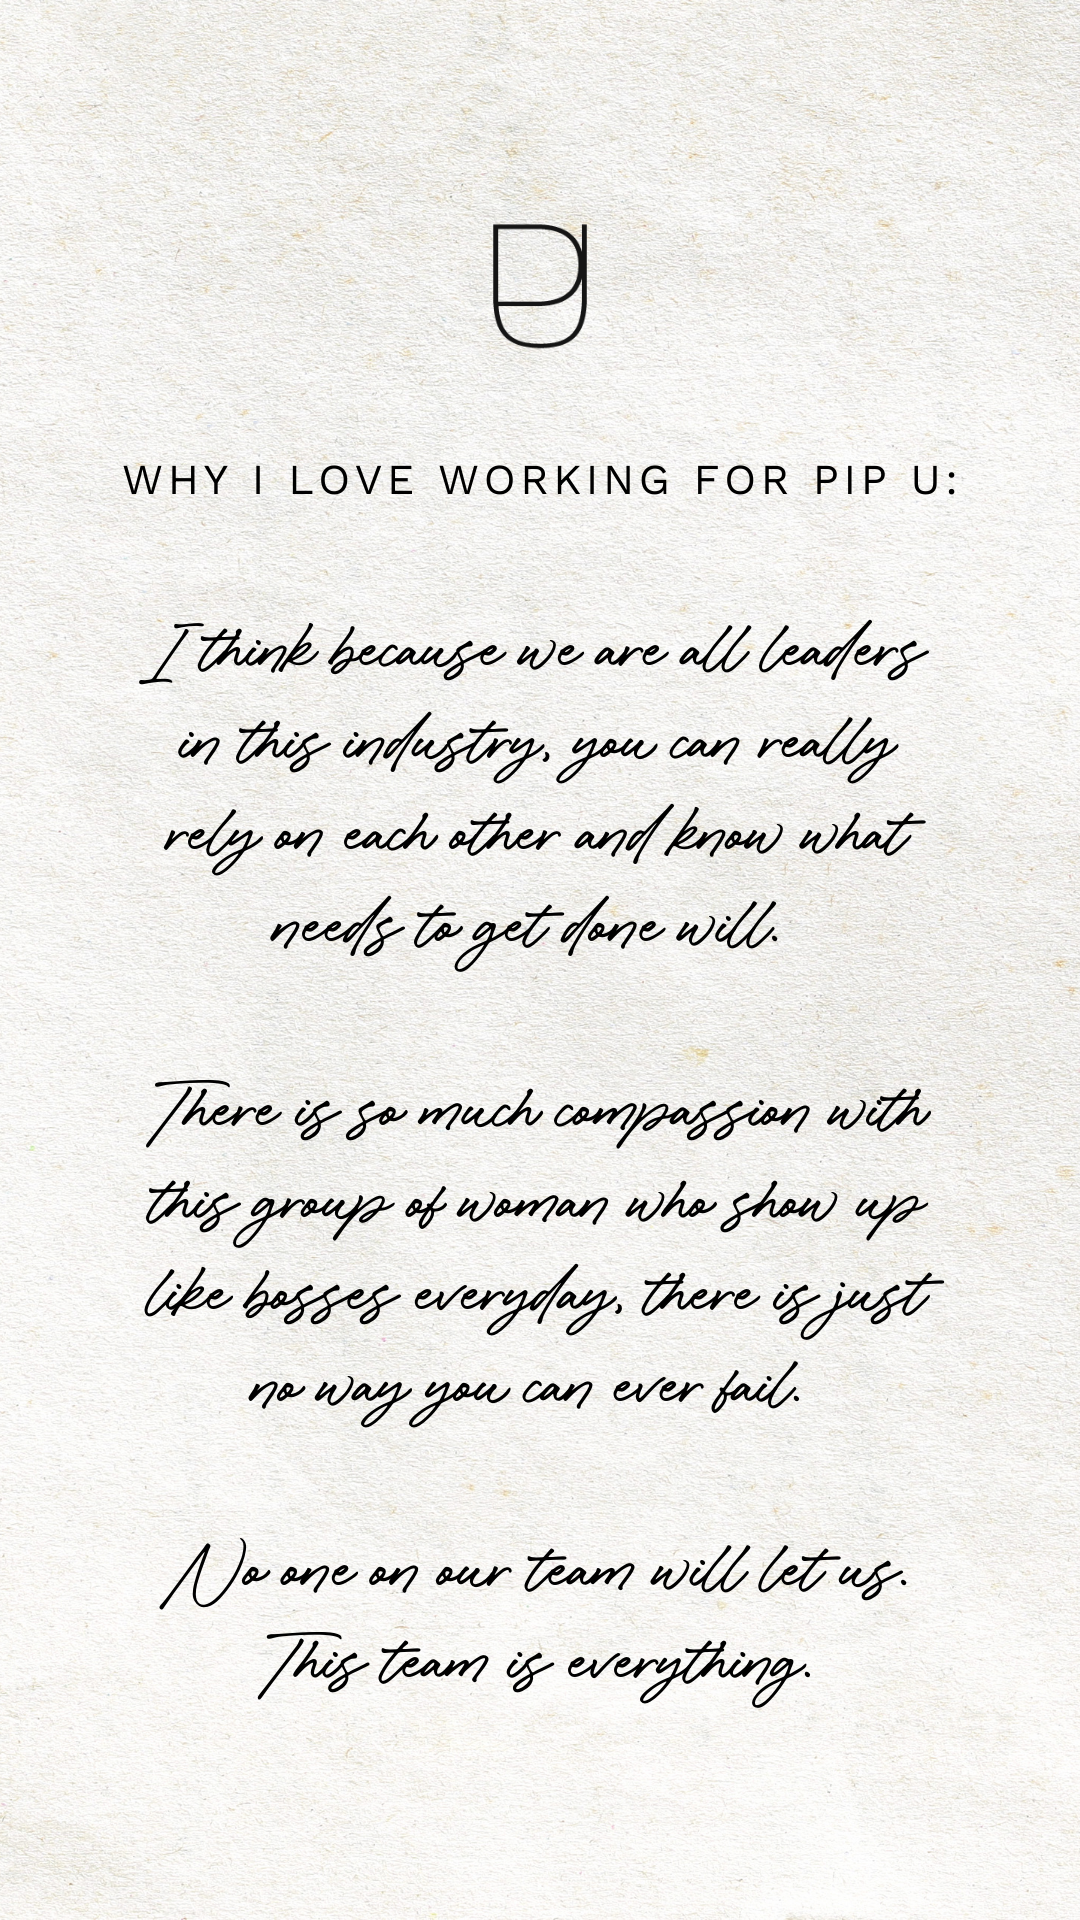 WHY I LOVE WORKING FOR PIP U:
I think because we are all leaders
in this industry, you can really
rely on each other and know what
needs to get done will.
There is so much compassion with
this group of woman who show up
like bosses everyday, there is just
no way you can ever fail.
No one on our team will let us.
This team is everything.